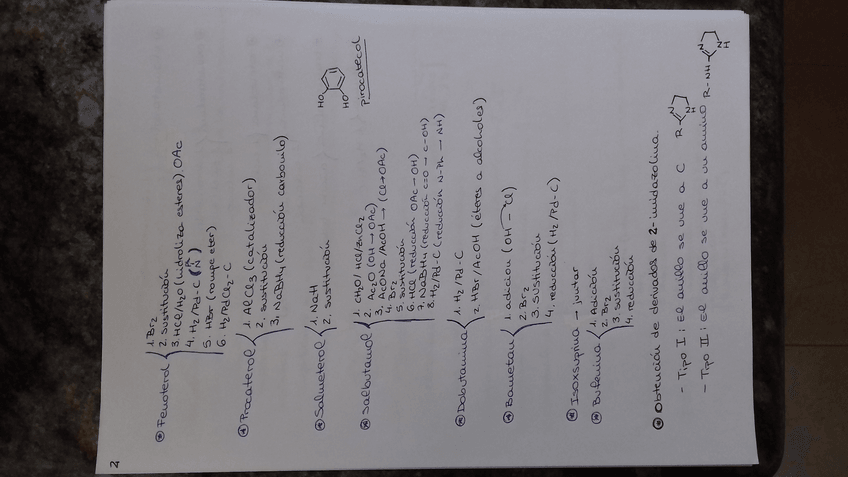 2
Fenoterol
1. Br2
2. Sustitución
3. HCl/H2O (hidroliza esteres) OAc
4. H2/Pd-C (N)
5. HBr (rompe eter)
6. H2/PdCl2-C
Procaterol
1. AlCl3 (catalizador)
2. Sustitución
3. NaBH4 (reducción carbonilo)
Salmeterol
1. NaH
2. Sustitución
HO
HO
pirocatecol
Salbutamol
1. CH2O/HCl/ZnCl2
2. Ac2O (OH → OAc)
3. AcONa/AcOH → (Cl → OAc)
4. Br2
5. Sustitución
6. HCl (reducción OAc → OH)
7. NaBH4 (reducción C=O → C-OH)
8. H2/Pd-C (reducción N-Ph → NH)
Dobutamina
1. H2/Pd-C
2. HBr/AcOH (éteres a alcoholes)
Bametan
1. adición (OH - Cl)
2. Br2
3. Sustitución
4. reducción (H2/Pd-C)
Isoxsuprina → juntar
Bufenina
1. Adición
2. Br2
3. Sustitución
4. reducción
Obtención de derivados de 2-imidazolina.
- Tipo I: El anillo se une a C R N N H
- Tipo II: El anillo se une a un amino R-NH N NH